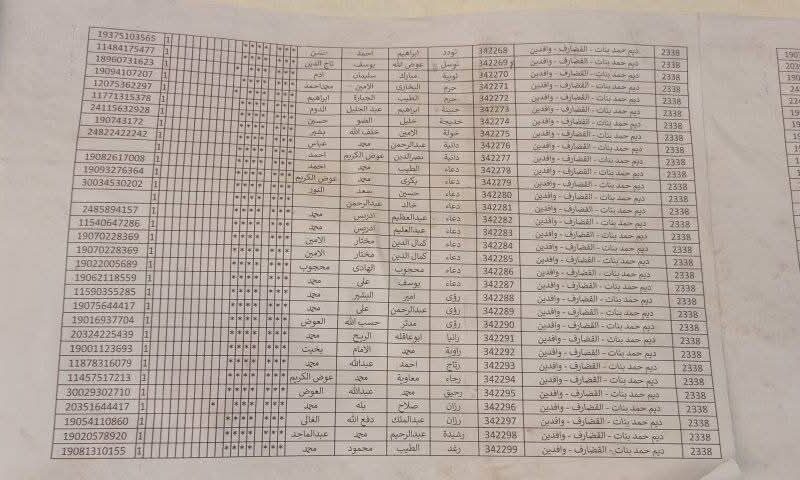 2338 ديم حمد بنات - القضارف - وافدين 342268 تودد ابراهيم احمد حسن *** **** 1 19375103565
2338 ديم حمد بنات - القضارف - وافدين 342269 توسل عوض الله يوسف تاج الدين *** **** 1 11484175477
2338 ديم حمد بنات - القضارف - وافدين 342270 ثويبة مبارك سليمان ادم *** **** 1 18960731623
2338 ديم حمد بنات - القضارف - وافدين 342271 حرم البخارى الامين محمداحمد *** **** 1 19094107207
2338 ديم حمد بنات - القضارف - وافدين 342272 حرم الطيب الجبارة ابراهيم *** **** 1 12075362297
2338 ديم حمد بنات - القضارف - وافدين 342273 ابراهيم عبد الجليل الدوم *** **** 1 11771315378
2338 ديم حمد بنات - القضارف - وافدين 342274 خديجة خليل الضو حسين *** **** 1 24115632928
2338 ديم حمد بنات - القضارف - وافدين 342275 خولة الامين خلف الله بشير *** **** 1 190743172
2338 ديم حمد بنات - القضارف - وافدين 342276 دانية عبدالرحمن محمد عباس *** **** 1 24822422242
2338 ديم حمد بنات - القضارف - وافدين 342277 دانية نصرالدين عوض الكريم احمد *** **** 1
2338 ديم حمد بنات - القضارف - وافدين 342278 دعاء الطيب محمد احمد *** **** 1 19082617008
2338 ديم حمد بنات - القضارف - وافدين 342279 دعاء بكرى محمد عوض الكريم *** **** 1 19093276364
2338 ديم حمد بنات - القضارف - وافدين 342280 دعاء حسين سعد النور *** **** 1 30034530202
2338 ديم حمد بنات - القضارف - وافدين 342281 دعاء خالد عبدالرحمن *** **** 1
2338 ديم حمد بنات - القضارف - وافدين 342282 دعاء عبدالعظيم ادريس محمد *** **** 1 2485894157
2338 ديم حمد بنات - القضارف - وافدين 342283 دعاء عبدالعليم ادريس محمد *** **** 1 11540647286
2338 ديم حمد بنات - القضارف - وافدين 342284 دعاء كمال الدين مختار الامين *** **** 1 19070228369
2338 ديم حمد بنات - القضارف - وافدين 342285 دعاء كمال الدين مختار الامين *** **** 1 19070228369
2338 ديم حمد بنات - القضارف - وافدين 342286 دعاء محجوب الهادى محجوب *** **** 1 19022005689
2338 ديم حمد بنات - القضارف - وافدين 342287 دعاء يوسف على محمد *** **** 1 19062118559
2338 ديم حمد بنات - القضارف - وافدين 342288 رؤى امير البشير محمد *** **** 1 11590355285
2338 ديم حمد بنات - القضارف - وافدين 342289 رؤى عبدالرحمن على محمد *** **** 1 19075644417
2338 ديم حمد بنات - القضارف - وافدين 342290 رؤى مدثر حسب الله العوض *** **** 1 19016937704
2338 ديم حمد بنات - القضارف - وافدين 342291 رانيا ابوعاقله الريح محمد *** **** 1 20324225439
2338 ديم حمد بنات - القضارف - وافدين 342292 راوية محمد الامام بخيت *** **** 1 19001123693
2338 ديم حمد بنات - القضارف - وافدين 342293 رتاج احمد عبدالله محمد *** **** 1 11878316079
2338 ديم حمد بنات - القضارف - وافدين 342294 رجاء معاوية محمد عوض الكريم *** **** 1 11457517213
2338 ديم حمد بنات - القضارف - وافدين 342295 رحيق محمد عبدالله العوض *** **** 1 30029302710
2338 ديم حمد بنات - القضارف - وافدين 342296 رزان صلاح بله محمد *** *** * 1 20351644417
2338 ديم حمد بنات - القضارف - وافدين 342297 رزان عبدالملك دفع الله الغالى *** **** 1 19054110860
2338 ديم حمد بنات - القضارف - وافدين 342298 رشيدة عبدالرحيم محمد عبدالماجد *** **** 1 19020578920
2338 ديم حمد بنات - القضارف - وافدين 342299 رغد الطيب محمود محمد *** **** 1 19081310155